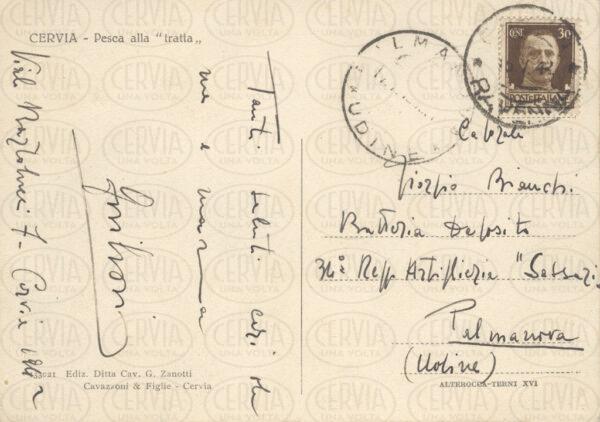 CERVIA - Pesca alla "tratta"
CENT. 30
POSTE ITALIANE
UDINE
Tanti saluti
me e mamma
Cervia
33021 Ediz. Ditta Cav. G. Zanotti
Cavazzoni & Figlie - Cervia
Caporale
Giorgio Bianchi
Batteria Deposito
34° Regg Artiglieria "Sassari"
Palmanova
(Udine)
ALTEROCCA-TERNI XVI
CERVIA
UNA VOLTA